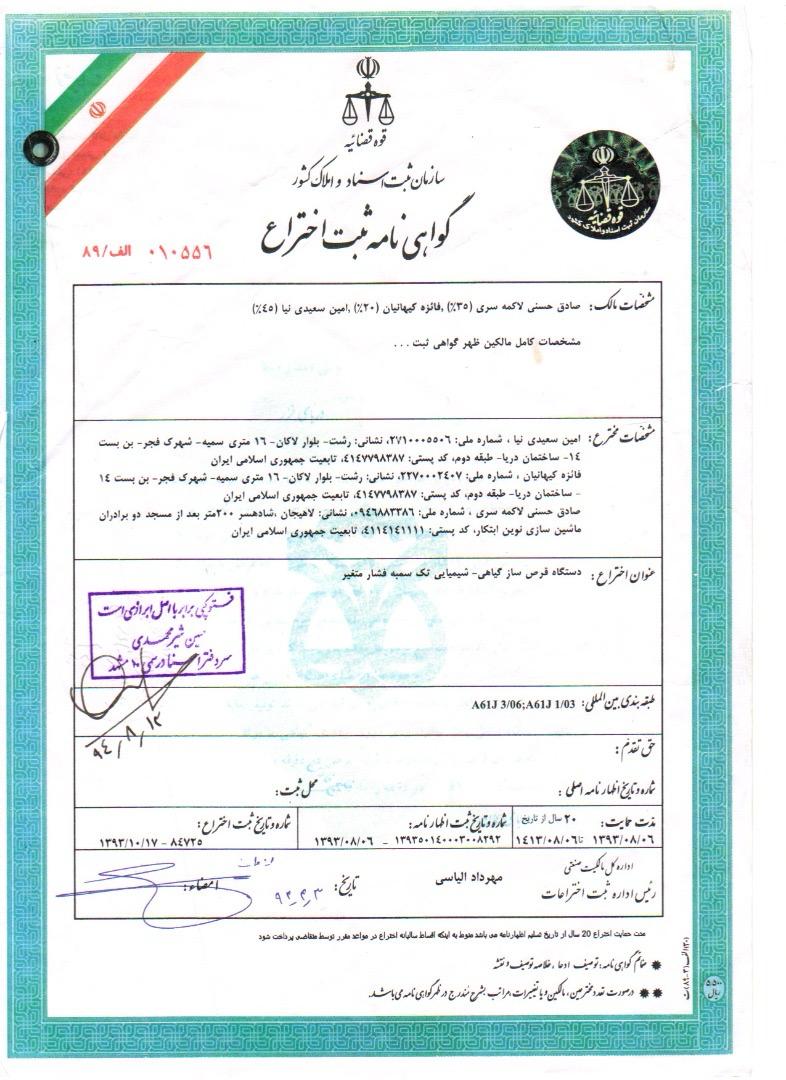 قوه قضائیه
سازمان ثبت اسناد و املاک کشور
گواهی نامه ثبت اختراع
قوه قضائیه
سازمان ثبت اسناد و املاک کشور
۰۱۰۵۵۶ الف/۸۹
مشخصات مالک: صادق حسنی لاکمه سری (۳۵٪) ,فائزه کیهانیان (۲۰٪) ,امین سعیدی نیا (۴۵٪)
مشخصات کامل مالکین ظهر گواهی ثبت ...
مشخصات مخترع: امین سعیدی نیا ، شماره ملی: ۲۷۱۰۰۰۵۵۰۶، نشانی: رشت- بلوار لاکان- ۱۶ متری سمیه- شهرک فجر- بن بست
۱۴- ساختمان دریا- طبقه دوم، کد پستی: ۴۱۴۷۷۹۸۳۸۷، تابعیت جمهوری اسلامی ایران
فائزه کیهانیان ، شماره ملی: ۲۲۷۰۰۰۲۴۰۷، نشانی: رشت- بلوار لاکان- ۱۶ متری سمیه- شهرک فجر- بن بست ۱۴
- ساختمان دریا- طبقه دوم، کد پستی: ۴۱۴۷۷۹۸۳۸۷، تابعیت جمهوری اسلامی ایران
صادق حسنی لاکمه سری ، شماره ملی: ۰۹۴۶۸۸۳۳۸۶، نشانی: لاهیجان ،شادهسر ۲۰۰متر بعد از مسجد دو برادران
ماشین سازی نوین ابتکار، کد پستی: ۴۱۱۴۱۴۱۱۱۱، تابعیت جمهوری اسلامی ایران
عنوان اختراع : دستگاه قرص ساز گیاهی- شیمیایی تک سمبه فشار متغیر
فتوکپی برابر با اصل ابرازی است
شیرمحمدی
سردفتر اسناد رسمی ۱۰ مشهد
۹۴/۸/۱۲
طبقه بندی بین المللی: A61J 3/06;A61J 1/03
حق تقدم :
شماره و تاریخ اظهارنامه اصلی :
محل ثبت:
مدت حمایت: ۲۰ سال از تاریخ
۱۳۹۳/۰۸/۰۶ تا ۱۴۱۳/۰۸/۰۶
شماره و تاریخ ثبت اظهارنامه:
۱۳۹۳۵۰۱۴۰۰۰۳۰۰۸۲۹۲ - ۱۳۹۳/۰۸/۰۶
شماره و تاریخ ثبت اختراع:
۸۴۷۲۵ - ۱۳۹۳/۱۰/۱۷
اداره کل مالکیت صنعتی
رئیس اداره ثبت اختراعات
مهرداد الیاسی
تاریخ:
امضاء:
مدت حمایت اختراع 20 سال از تاریخ تسلیم اظهارنامه می باشد منوط به اینکه اقساط سالیانه اختراع در مواعد مقرر توسط متقاضی پرداخت شود
✹ ضمائم گواهی نامه: توصیف، ادعا، خلاصه توصیف و نقشه
✹✹ در صورت تعدد مخترعین، مالکین و یا تغییرات، مراتب بشرح مندرج در ظهر گواهی نامه می باشد.
۵۵۰۰
ریال